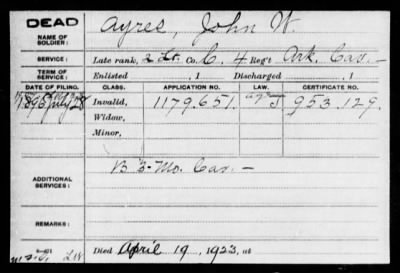 DEAD
NAME OF SOLDIER: Ayres, John W.
SERVICE: Late rank, 2 Lt. Co. C, 4 Reg't Ark. Cav. —
TERM OF SERVICE: Enlisted , 1 Discharged , 1
DATE OF FILING. CLASS. APPLICATION NO. LAW. CERTIFICATE NO.
1896 July 28 Invalid, 1179.651. 953.129.
Widow,
Minor,
ADDITIONAL SERVICES: B 3 Mo. Cav. —
REMARKS:
Died April 19, 1923, at